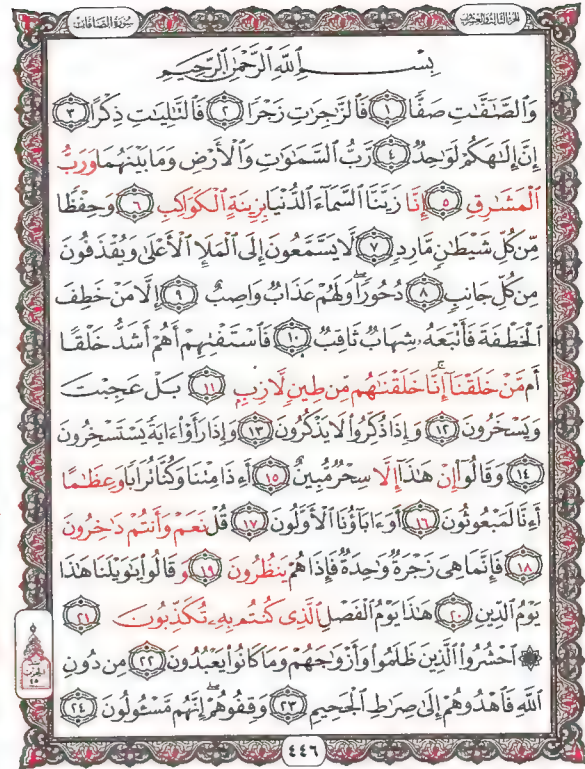 سورة الصافات
الجزء الثالث والعشرون
بِسْمِ ٱللَّهِ ٱلرَّحْمَٰنِ ٱلرَّحِيمِ
وَٱلصَّٰٓفَّٰتِ صَفًّا ١ فَٱلزَّٰجِرَٰتِ زَجْرًا ٢ فَٱلتَّٰلِيَٰتِ ذِكْرًا ٣
إِنَّ إِلَٰهَكُمْ لَوَٰحِدٌ ٤ رَّبُّ ٱلسَّمَٰوَٰتِ وَٱلْأَرْضِ وَمَا بَيْنَهُمَا وَرَبُّ
ٱلْمَشَٰرِقِ ٥ إِنَّا زَيَّنَّا ٱلسَّمَآءَ ٱلدُّنْيَا بِزِينَةٍ ٱلْكَوَاكِبِ ٦ وَحِفْظًا
مِّن كُلِّ شَيْطَٰنٍ مَّارِدٍ ٧ لَّا يَسَّمَّعُونَ إِلَى ٱلْمَلَإِ ٱلْأَعْلَىٰ وَيُقْذَفُونَ
مِن كُلِّ جَانِبٍ ٨ دُحُورًا ۖ وَلَهُمْ عَذَابٌ وَاصِبٌ ٩ إِلَّا مَنْ خَطِفَ
ٱلْخَطْفَةَ فَأَتْبَعَهُۥ شِهَابٌ ثَاقِبٌ ١٠ فَٱسْتَفْتِهِمْ أَهُمْ أَشَدُّ خَلْقًا
أَم مَّنْ خَلَقْنَآ ۚ إِنَّا خَلَقْنَٰهُم مِّن طِينٍ لَّازِبٍ ١١ بَلْ عَجِبْتَ
وَيَسْخَرُونَ ١٢ وَإِذَا ذُكِّرُوا۟ لَا يَذْكُرُونَ ١٣ وَإِذَا رَأَوْا۟ ءَايَةً يَسْتَسْخِرُونَ
١٤ وَقَالُوٓا۟ إِنْ هَٰذَآ إِلَّا سِحْرٌ مُّبِينٌ ١٥ أَءِذَا مِتْنَا وَكُنَّا تُرَابًا وَعِظَٰمًا
أَءِنَّا لَمَبْعُوثُونَ ١٦ أَوَءَابَآؤُنَا ٱلْأَوَّلُونَ ١٧ قُلْ نَعَمْ وَأَنتُمْ دَٰخِرُونَ
١٨ فَإِنَّمَا هِىَ زَجْرَةٌ وَٰحِدَةٌ فَإِذَا هُمْ يَنظُرُونَ ١٩ وَقَالُوا۟ يَٰوَيْلَنَا هَٰذَا
يَوْمُ ٱلدِّينِ ٢٠ هَٰذَا يَوْمُ ٱلْفَصْلِ ٱلَّذِى كُنتُم بِهِۦ تُكَذِّبُونَ ٢١
۞ ٱحْشُرُوا۟ ٱلَّذِينَ ظَلَمُوا۟ وَأَزْوَٰجَهُمْ وَمَا كَانُوا۟ يَعْبُدُونَ ٢٢ مِن دُونِ
ٱللَّهِ فَٱهْدُوهُمْ إِلَىٰ صِرَٰطِ ٱلْجَحِيمِ ٢٣ وَقِفُوهُمْ ۖ إِنَّهُم مَّسْـُٔولُونَ ٢٤
٤٤٦